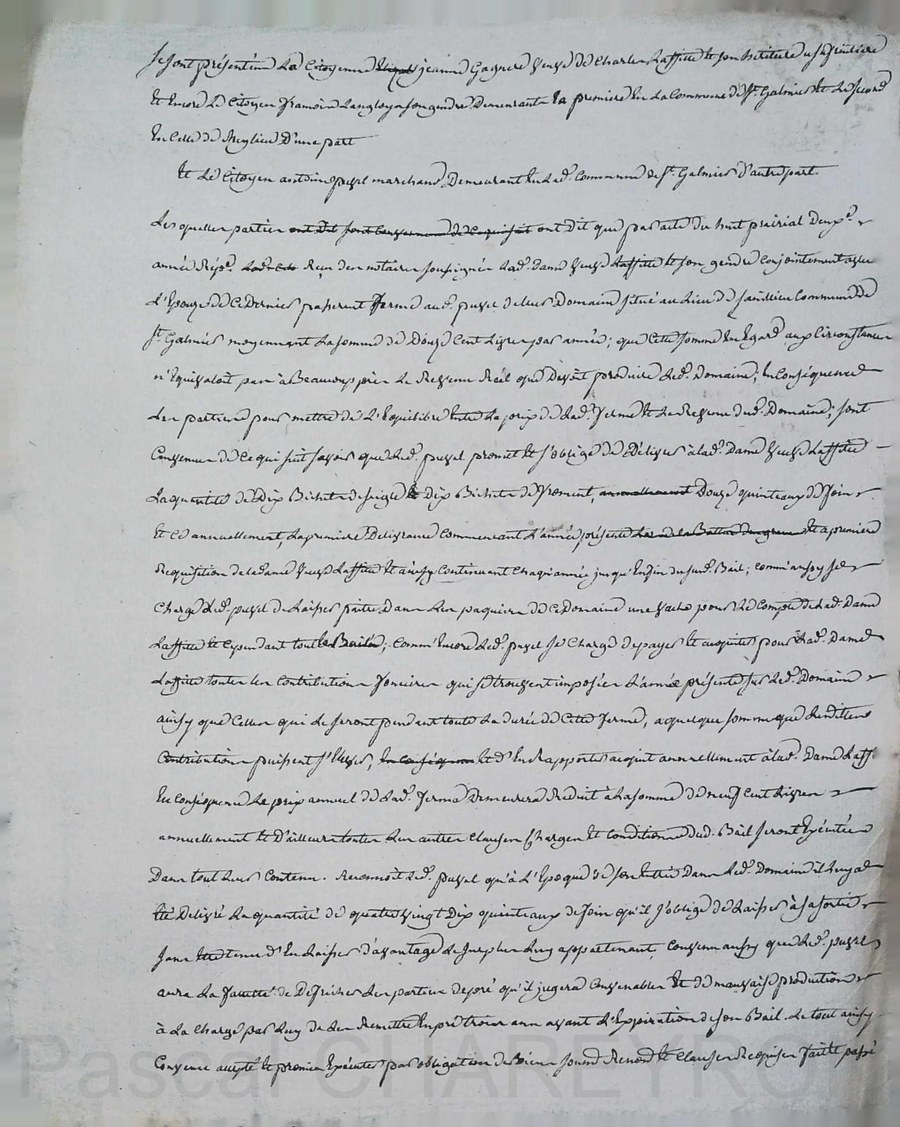 Se sont présentés La Citoyenne jeanne Gagnere veuve de Charles Laffitte et son héritiere usufruitiere
Et Encore Le Citoyen francois Langlois son gendre Demeurants La premiere En La Commune de St. Galmier et Le Second
En Celle de Meylieu D'une part
Et Le Citoyen antoine puzel marchand Demeurant En Lad. Commune de St. Galmier d'autre part.
Les quelles parties ont dit sont Convenues de Ce qui suit ont dit que par acte du huit prairial Deux.e
année Rép.e Reçu des notaires soussignés Lad. Dame veuve Laffitte et son gendre Conjointement avec
L'Epouze de Ce Dernier passerent ferme aud. puzel de leur Domaine situé au Lieu de Commune de
St. Galmier moyennant La somme de Douze Cent Livres par année; que Cette somme En Egard aux Circonstances
n'Equivaloit pas à Beaucoup près Le Revenu Réel que Devoit produire Led. Domaine; En Conséquence
Les parties pour mettre de L'Equilibre Entre Le prix de Lad. ferme et Le Revenu dud. Domaine; sont
Convenues de Ce qui suit savoir que Led. puzel promet et s'oblige de Délivrer à lad. Dame veuve Laffitte
La quantité de Dix Bichets de seigle et Dix Bichets de froment, annuellement Douze quinteaux de foin
Et Ce annuellement, La premiere Délivrance Commencant L'année présente et a premiere
Requisition de la Dame veuve Laffitte et ainsy Continuant Chaq. année jusqu'En fin du sud. Bail; comm'aussy se
Charge Led. puzel de Laisser paitre Dans Les paquiers de Ce Domaine une vache pour Le Compte de Lad. Dame
Laffitte et Cependant tout le Bail; Comm'Encore Led. puzel se Charge de payer et acquitter pour Lad. Dame
Laffitte toutes les Contributions foncieres qui se trouvent imposées L'année présente sur Led. Domaine
ainsy que Celles qui Le seront pendant toute La durée de Cette ferme, a quelque somme que Lesdittes
Contributions puissent s'Elever, En Conséquence Et d'En Rapporter acquit annuellement à lad. Dame Laff.
En Conséquence Le prix annuel de Lad. ferme Demeurera Reduit à La somme de neuf Cent Livres
annuellement et D'ailleurs toutes Les autres Clauses Charges et Conditions dud. Bail seront Exécutées
Dans tout Leur Contenu. Reconnoit Led. puzel qu'à L'Epoque de son Entrée Dans Led. Domaine il Luy a
Eté Délivré La quantité de quatre vingt Dix quinteaux de foin qu'il s'oblige de Laisser à sa sortie
sans Etre tenu d'En Laisser d'avantage Le surplus Luy appartenant, Convenu aussy que Led. puzel
aura La faculté de Défricher Les parties de pré qu'il jugera Convenables Et de mauvaise production
à La Charge par Luy de Les Remettre En pré trois ans avant L'Expiration de son Bail. Le tout ainsy
Convenu accepté et promis Exécuter par obligation de Biens soumis. Renon. et Clauses Requises fait et passé
Pascal CHAREYRON